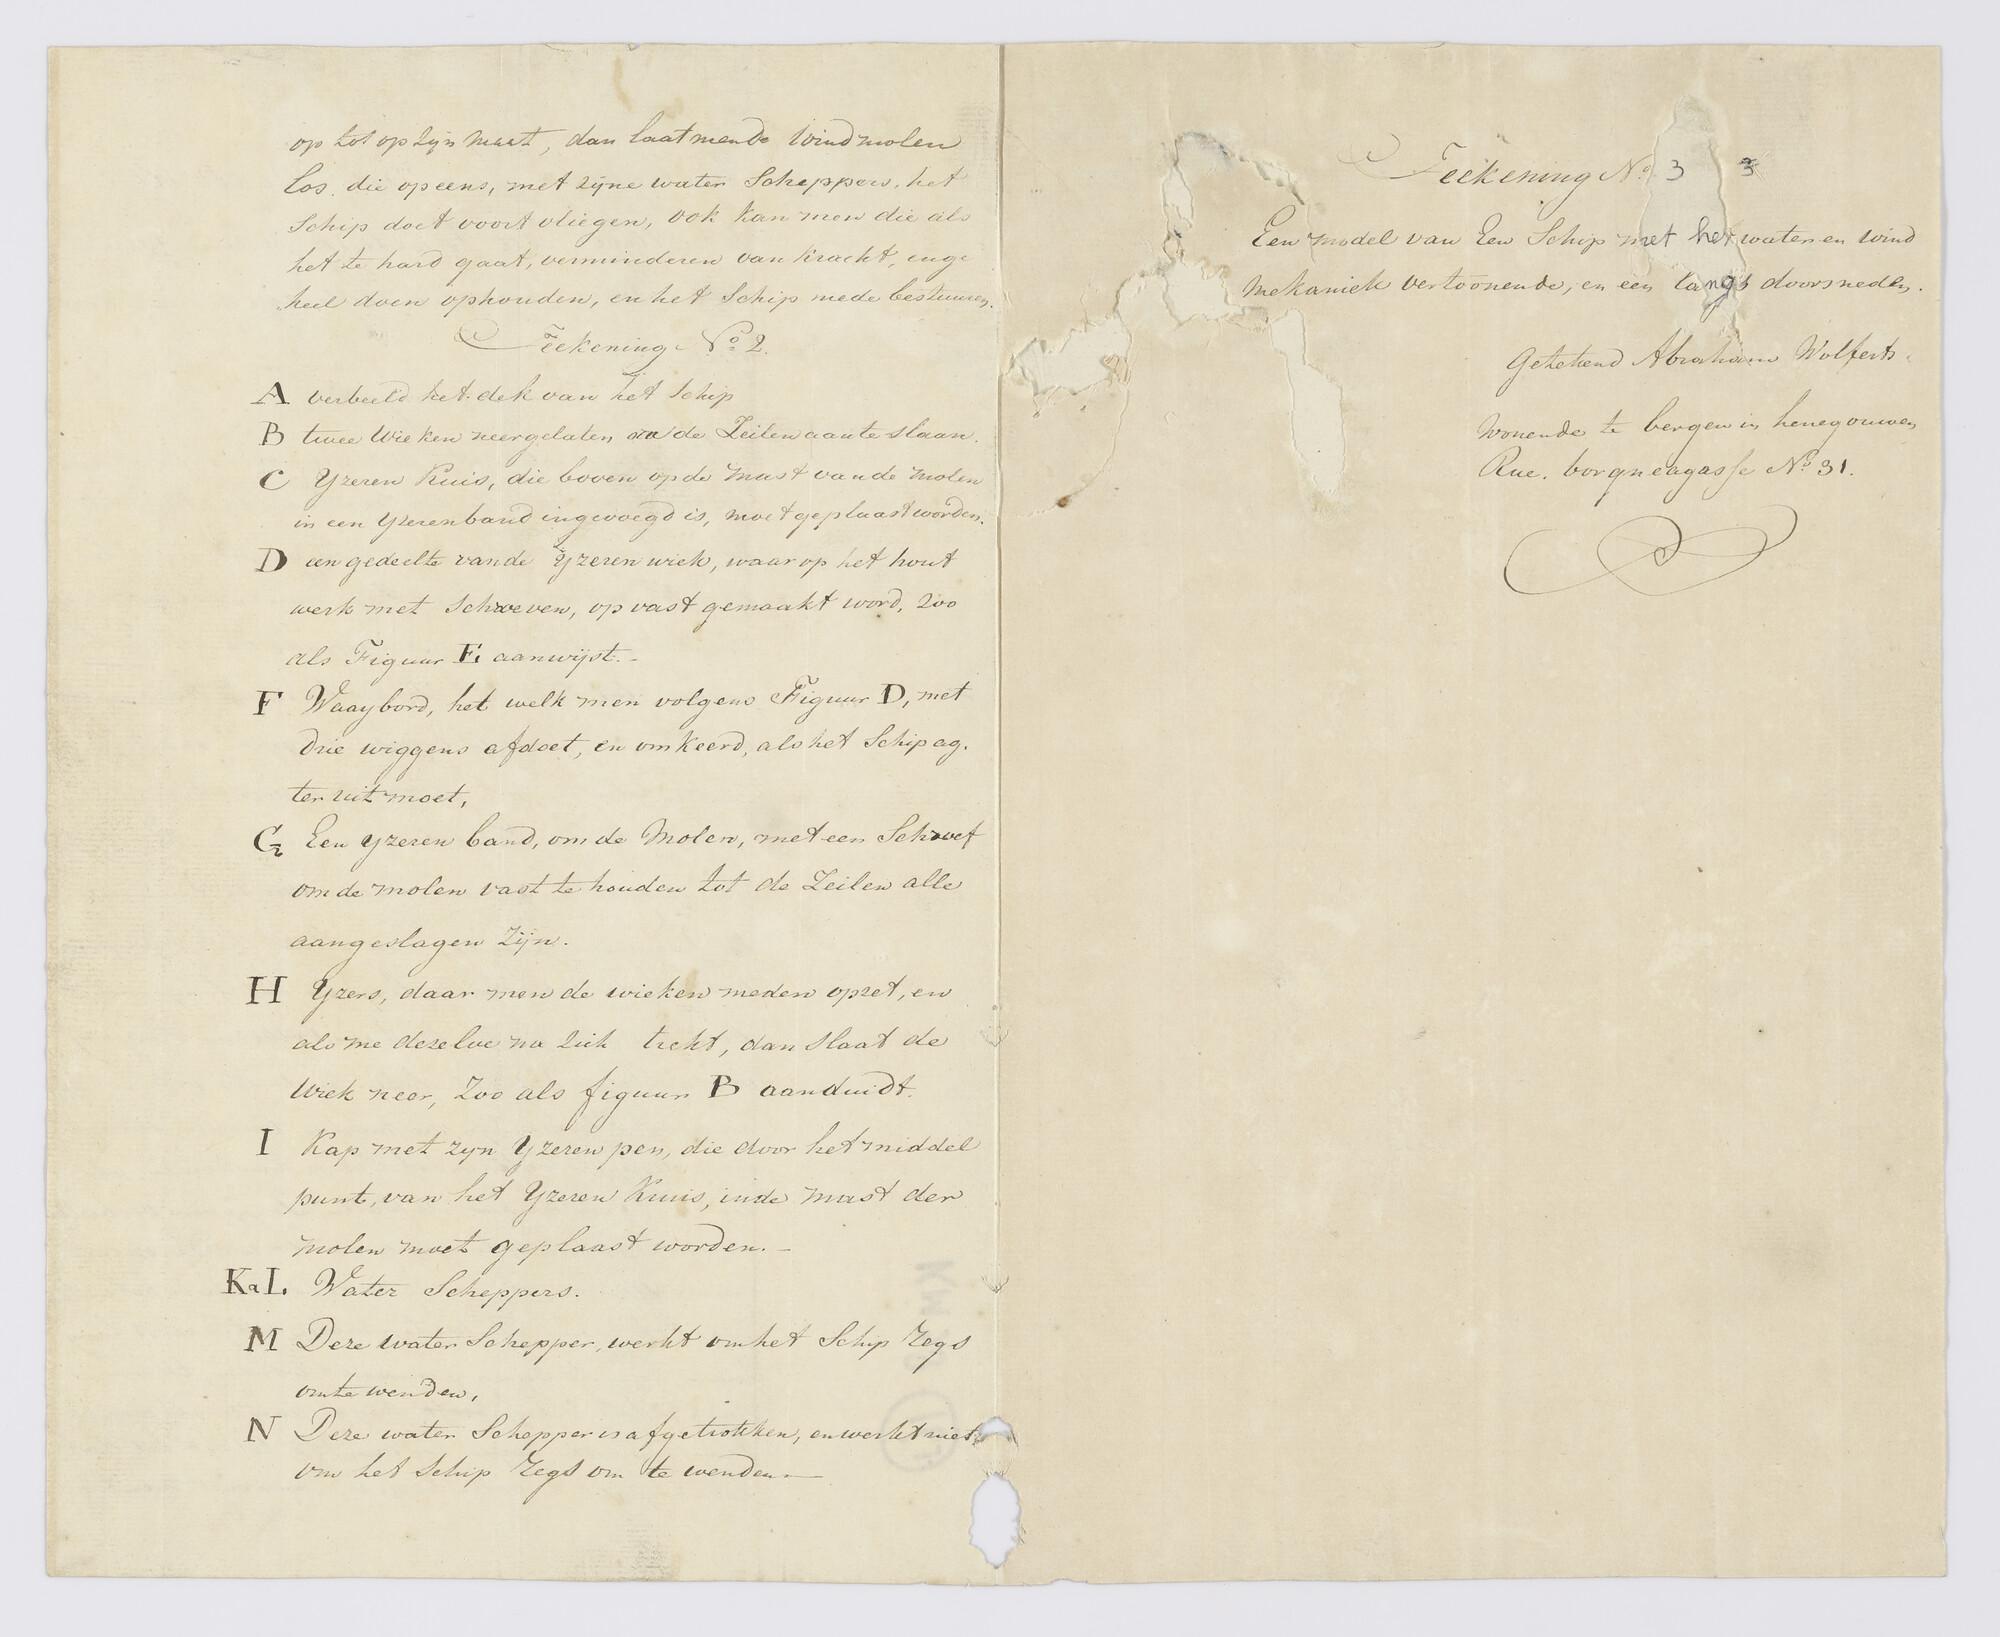 op tot op zijn maat, dan laat men de Windmolen
los, die op eens, met zijne water Scheppers, het
Schip doet voort vliegen, ook kan men die als
het te hard gaat, verminderen van Kracht, en ge
heel doen ophouden, en het Schip mede bestuuren.
Teekening No. 2.
A verbeeld het dek van het Schip
B twee Wieken neergelaten na de Zeilen aan te slaan.
C Yzeren Kuis, die boven op de mast van de molen
in een Yzeren band ingevoegd is, moet geplaast worden.
D een gedeelte van de Yzeren wiek, waar op het hout
werk met Schroeven, op vast gemaakt word, zoo
als Figuur E aanwijst.-
F Waaybord, het welk men volgens Figuur D, met
drie wiggens afdoet, en omkeerd, als het Schip ag.
ter uit moet,
G Een yzeren band, om de Molen, met een Schroef
om de molen vast te houden tot de Zeilen alle
aangeslagen Zijn.
H Yzers, daar men de wieken meden opzet, en
als me dezelve na zich trekt, dan slaat de
Wiek neer, Zoo als figuur B aanduidt.
I Kap met zyn Yzeren pen, die door het middel
punt, van het Yzeren Kuis, in de mast der
molen moet geplaast worden.-
K a L. Water Scheppers.
M Deze water Schepper, werkt om het Schip Regs
om te wenden,
N Deze water Schepper is afgetrokken, en werkt niet
om het Schip Regs om te wenden—
Teekening No. 3 3
Een model van Een Schip met het water en Wind
Mekaniek vertoonende, en een langs doorsneden.
Getekend Abraham Wolferts.
Wonende te bergen in henegouwen
Rue. borgneagasse No 31.